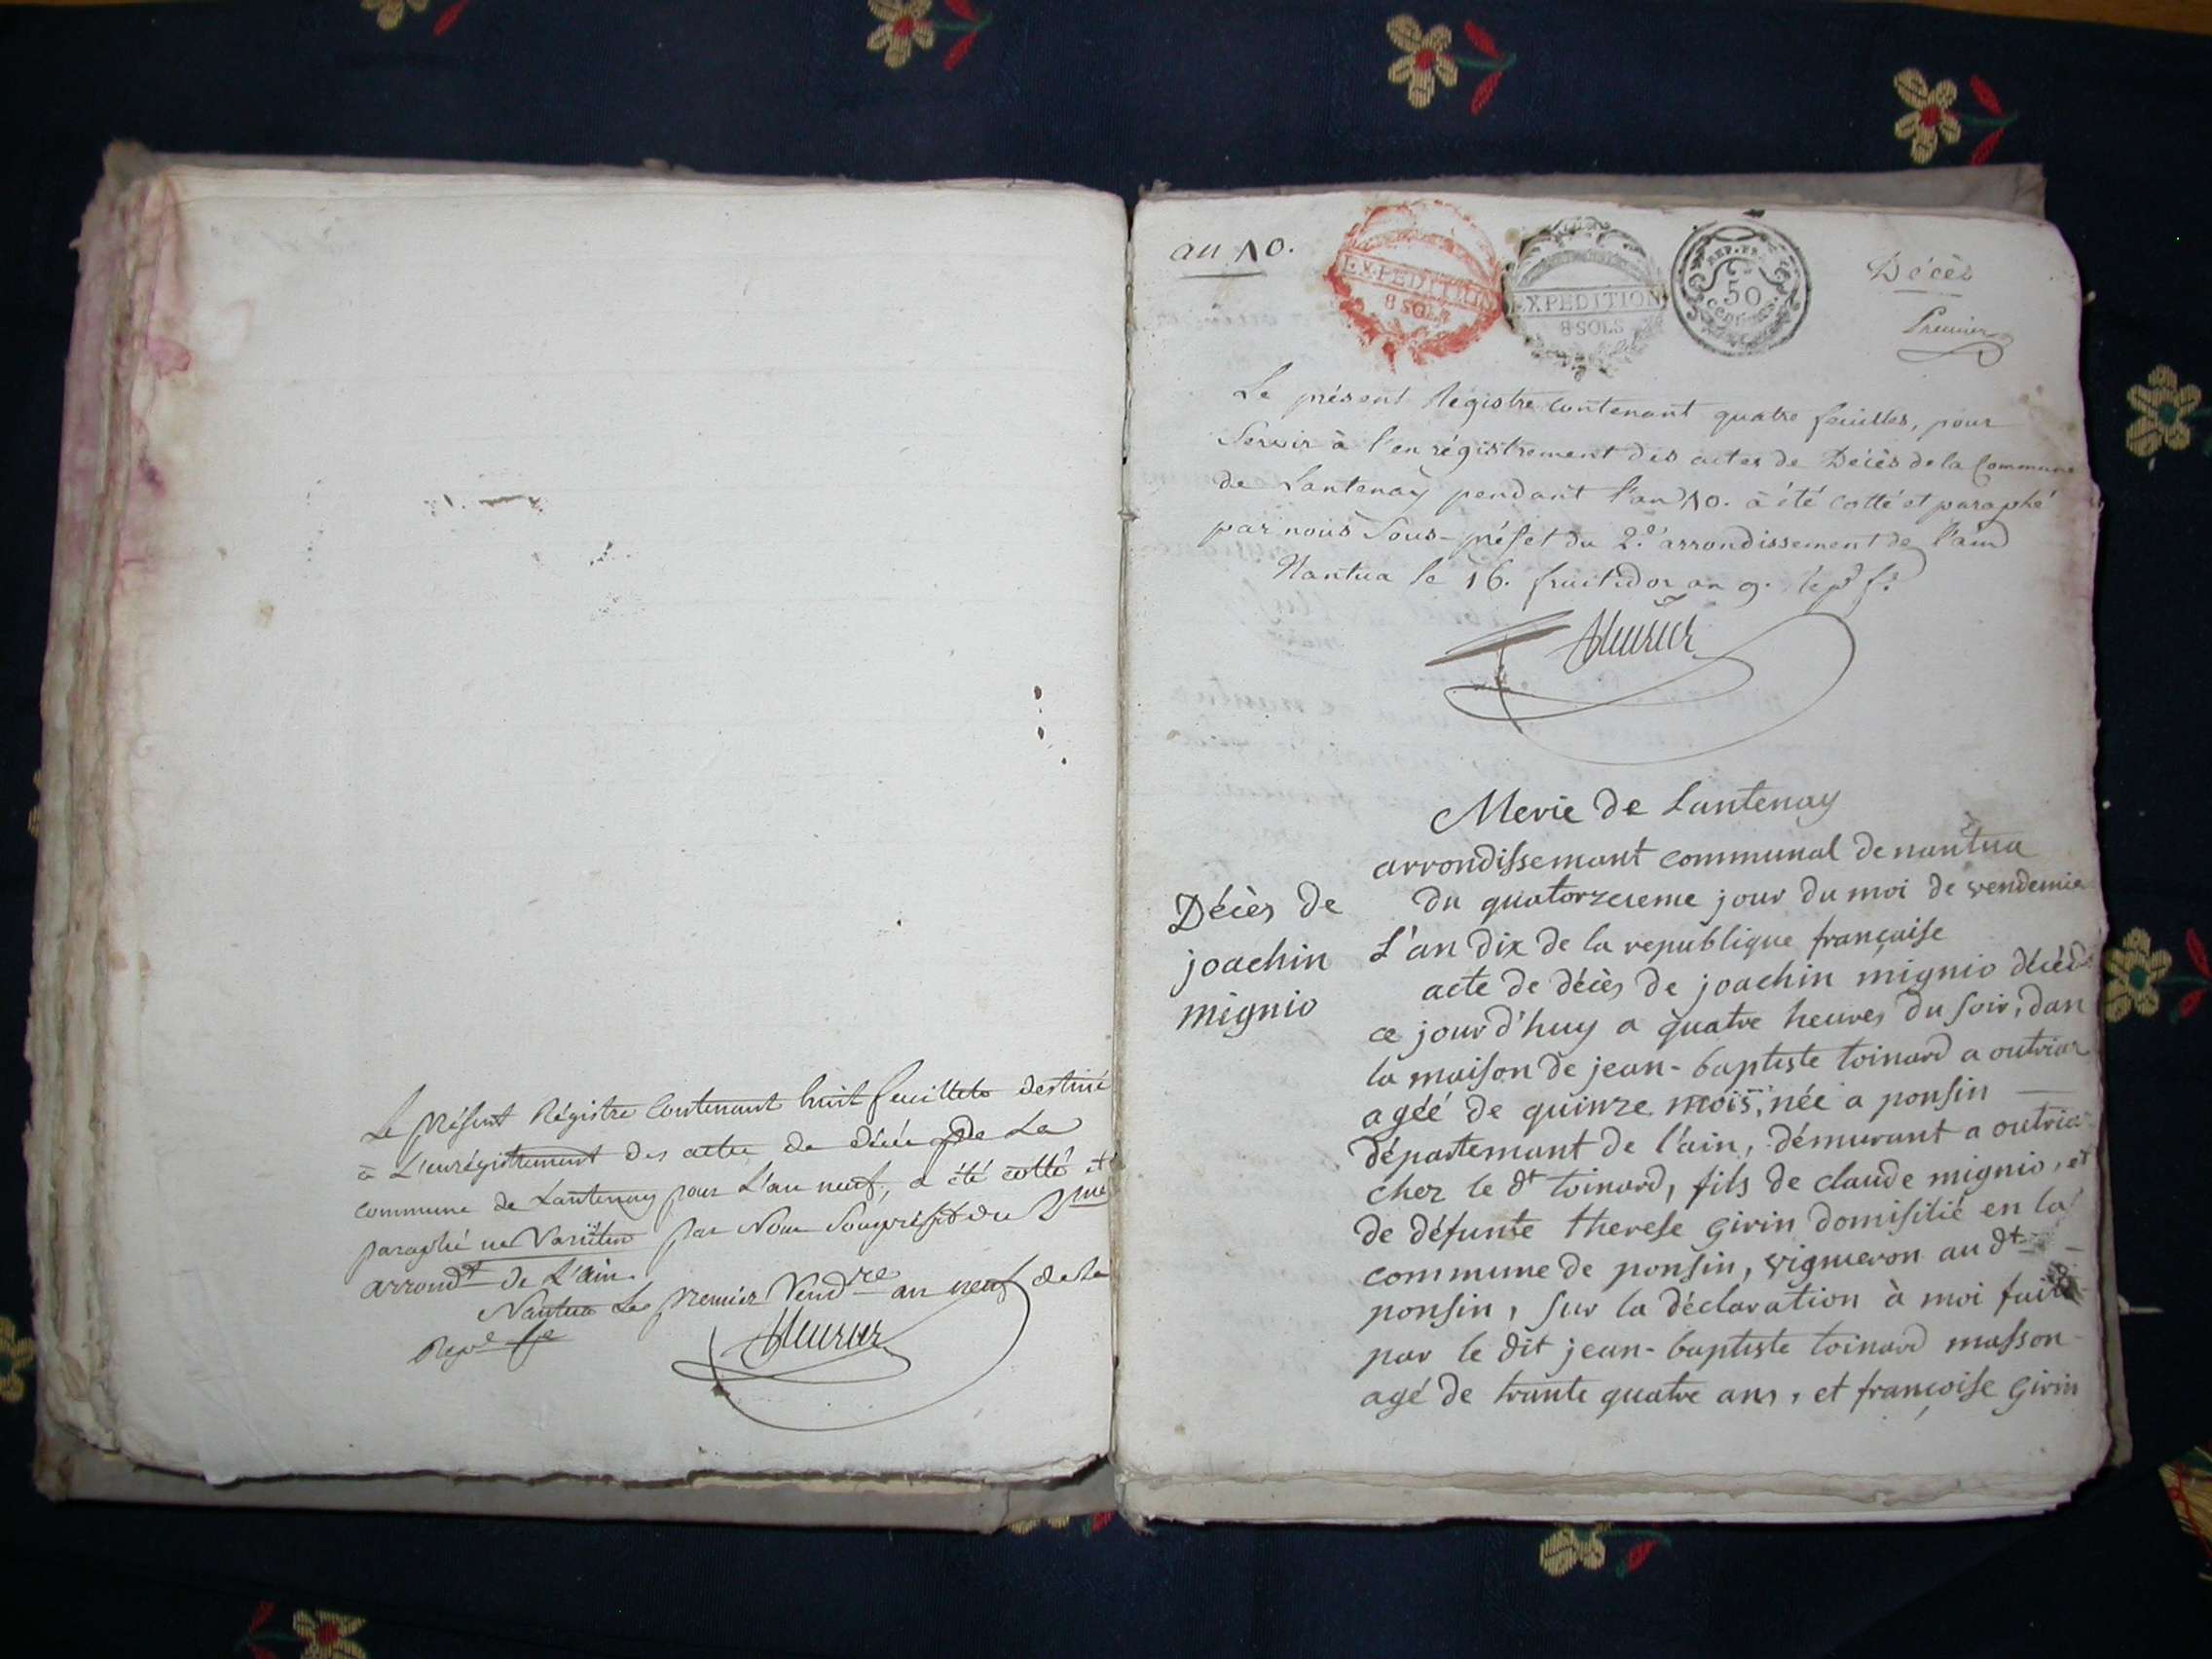 Le présent Régistre Contenant huit feuillets destiné
à L'enrégistrement des actes de décès de La
commune de Lantenay pour L'an neuf, a été cotté et
paraphé par Nous Souspréfet du 2me
arrondt de L'ain.
Nantua Le premier Vendre an neuf de la
Repe fe
an 10.
EXPEDITION
8 SOLS
EXPEDITION
8 SOLS
REP. FRA.
50
CENTIMES.
Décès
Premier
Le présent Régistre contenant quatre feuilles, pour
Servir à l'enrégistrement des actes de Décès de la Commune
de Lantenay pendant l'an 10. à été cotté et paraphé
par nous Sous-préfet du 2e. arrondissement de l'ain
Nantua le 16. fructidor an 9.
Merie de Lantenay
arrondissemant communal de nantua
du quatorzeieme jour du moi de vendemie
L'an dix de la republique française
Décès de
joachin
mignio
acte de décès de joachin mignio décéd
ce jourd'huy a quatre heures du soir, dan
la maison de jean-baptiste toinard a outriaz
agéé de quinze mois, née a ponsin
départemant de l'ain, démurant a outria
chez le dt toinard, fils de claude mignio, et
de défunte therese Girin domisilié en la
commune de ponsin, vigneron au dt
ponsin, sur la déclaration à moi faite
par le dit jean-baptiste toinard masson
agé de trante quatre ans, et françoise Girin